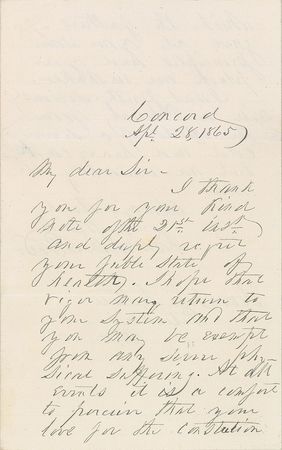 Concord
Apl. 28, 1865
My dear Sir -
I thank
you for your kind
note of the 21st inst
and deeply regret
your feeble state of
health. I hope that
vigor may return to
your system and that
you may be exempt
from any severe phy
sical suffering. At all
events it is a comfort
to perceive that your
love for the Constitution